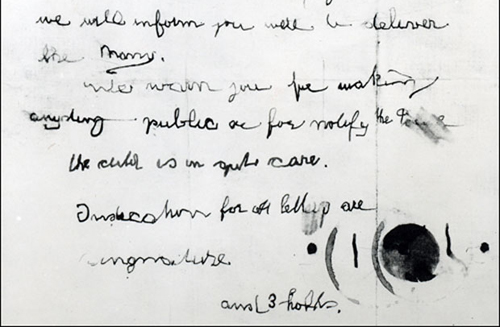 we will inform you were to deliver
the Mony.
We warn you for making
anyding public or for notify the
the child is in gute care.
Indication for all are
singnature
and 3 holds.